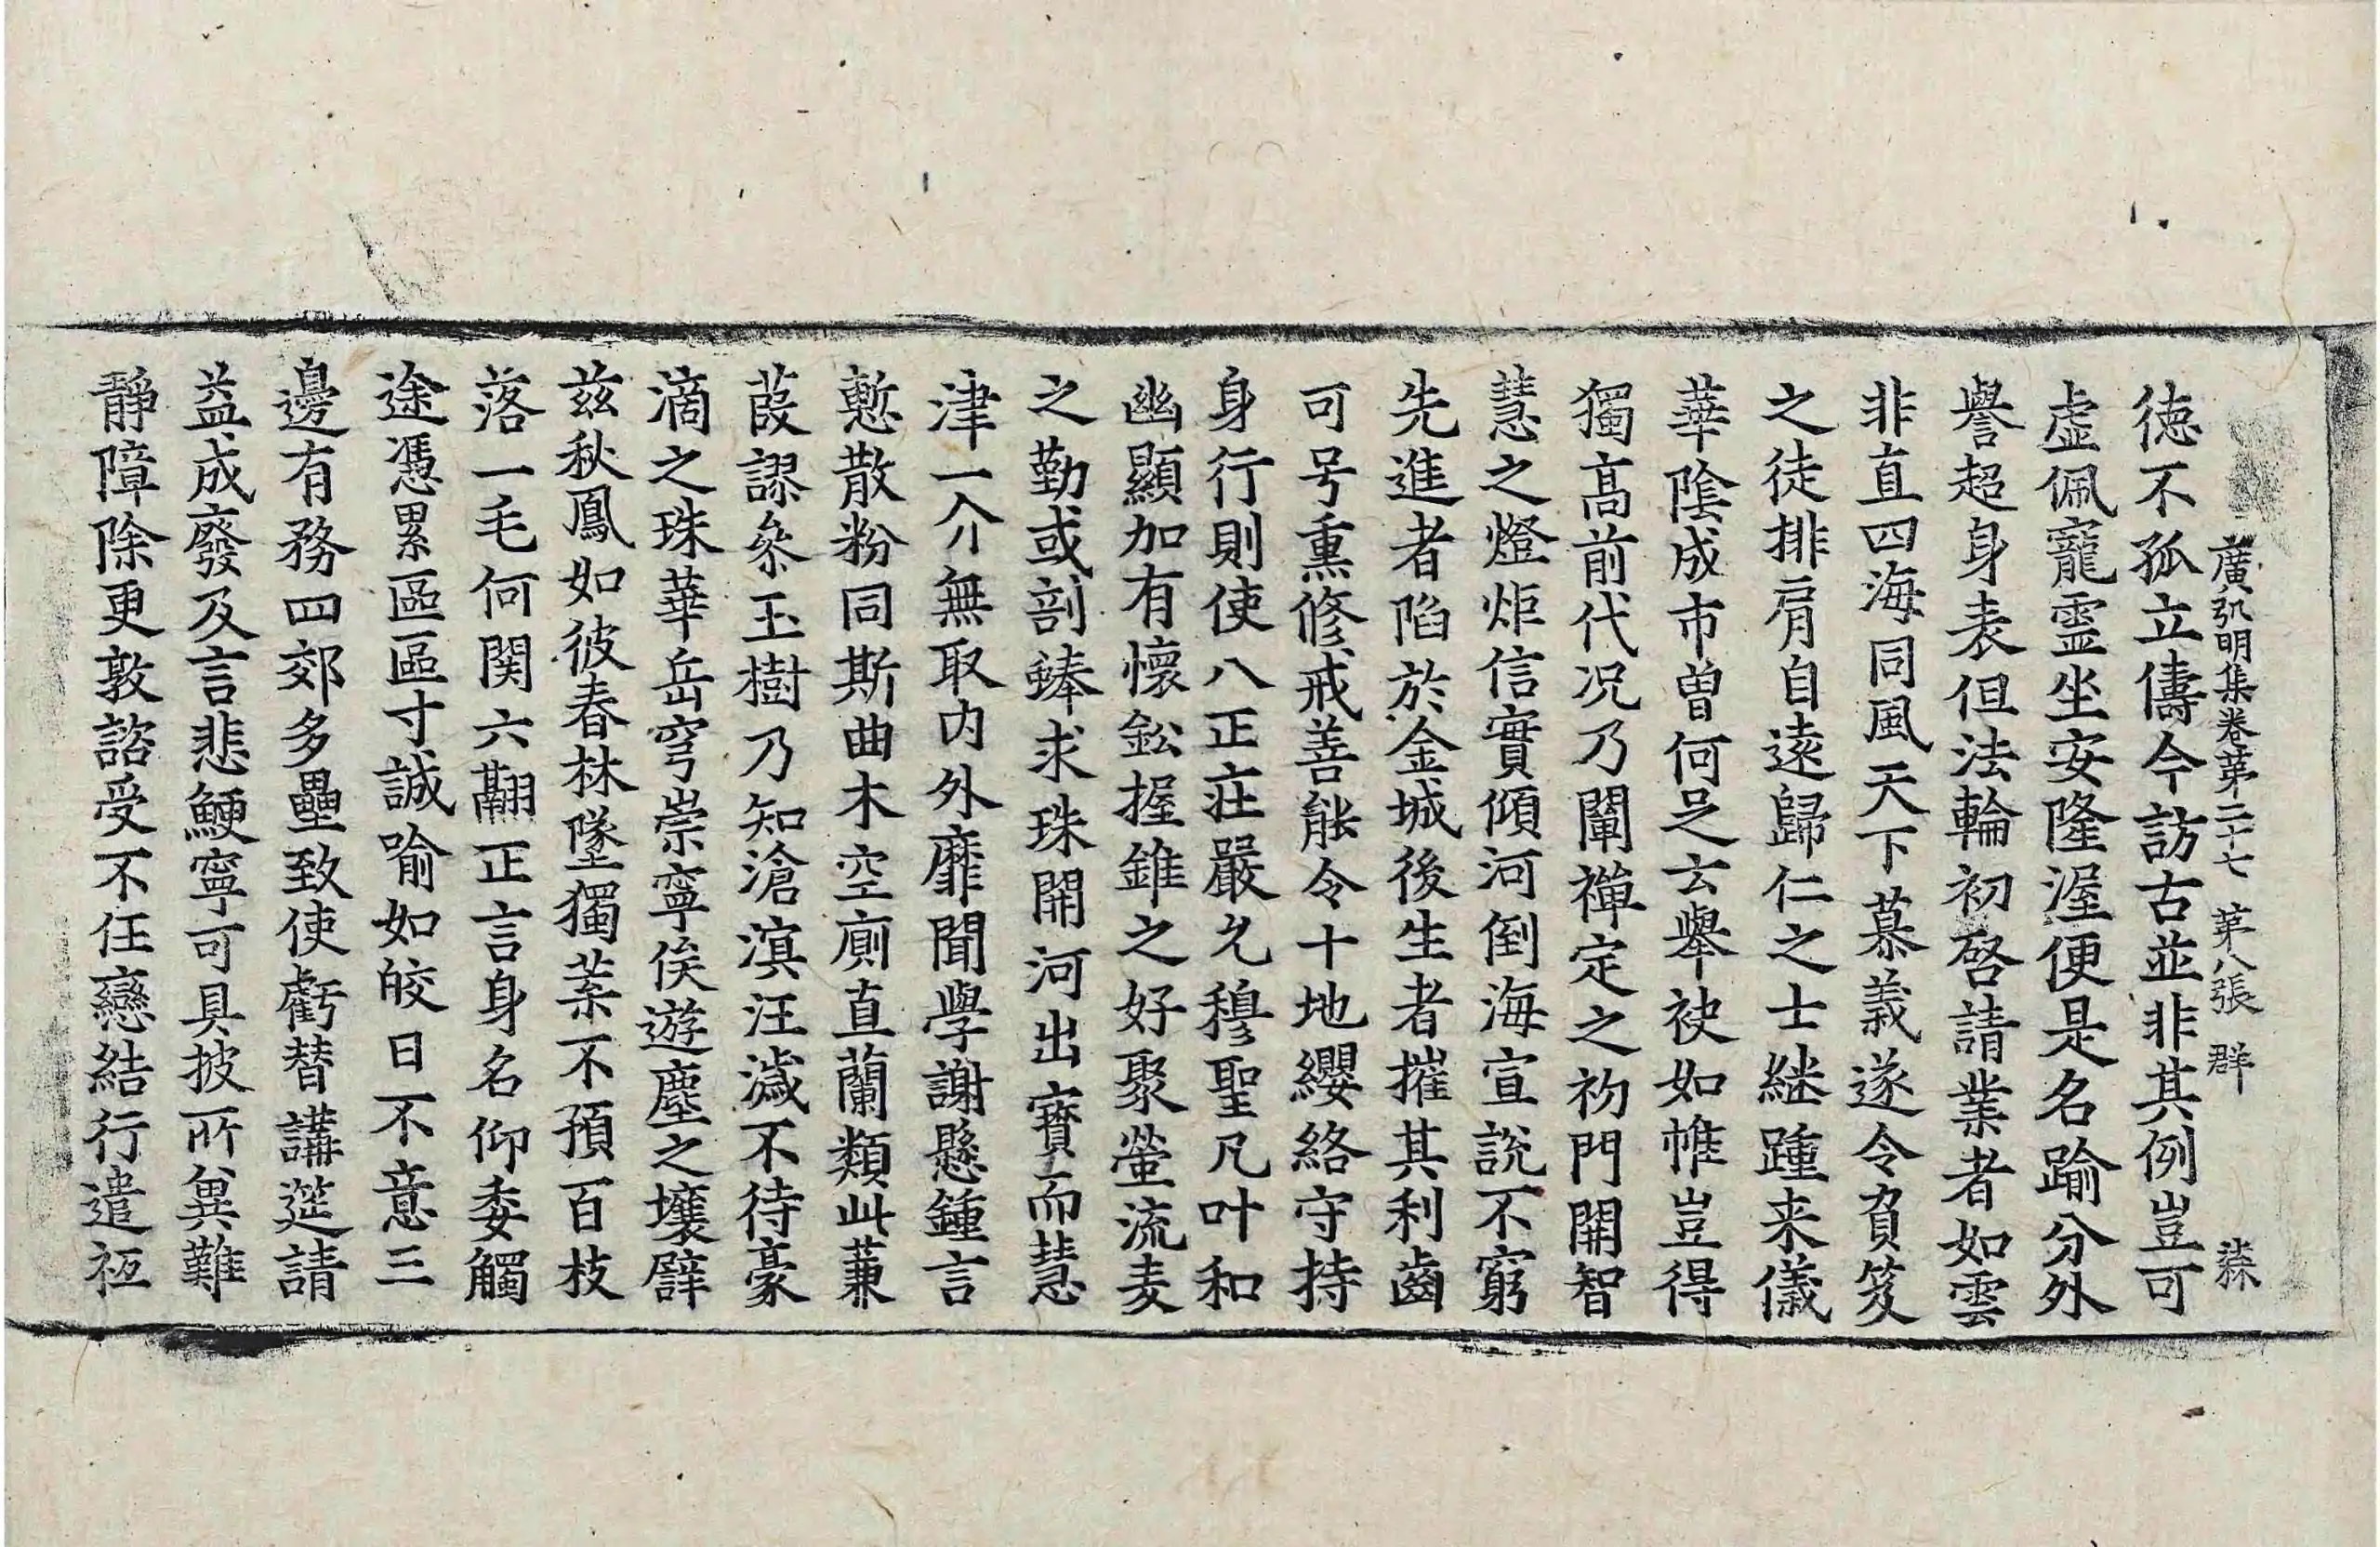 廣弘明集卷苐二十七 苐八張 群
徳不孤立儔今訪古並非其例豈可
虛佩寵靈坐安隆渥便是名踰分外
譽超身表但法輪初啓請業者如雲
非直四海同風天下慕義遂令負笈
之徒排肩自遠歸仁之士継踵来儀
華陰成市曽何足云舉袂如帷豈得
獨髙前代况乃闡禪定之初門開智
慧之燈炬信實傾河倒海宣說不窮
先進者陷於金城後生者摧其利齒
可号熏修戒善能令十地纓絡守持
身行則使八正莊嚴允穆聖凡叶和
幽顯加有懷鈆握錐之好聚螢流麦
之勤或剖蜯求珠開河出寶而慧
津一介無取内外靡聞學謝懸鍾言
慙散粉同斯曲木空廁直蘭類此蒹
葭謬叅玉樹乃知滄溟汪濊不待豪
滴之珠華岳穹崇寧俟遊塵之壤譬
兹秋鳳如彼春林墜獨葉不預百枝
落一毛何関六翮正言身名仰委觸
途憑累區區寸誠喻如皎日不意三
邊有務四郊多壘致使虧替講筵請
益成廢及言悲鯁寧可具披所兾難
靜障除更敦諮受不任戀結行遣秖